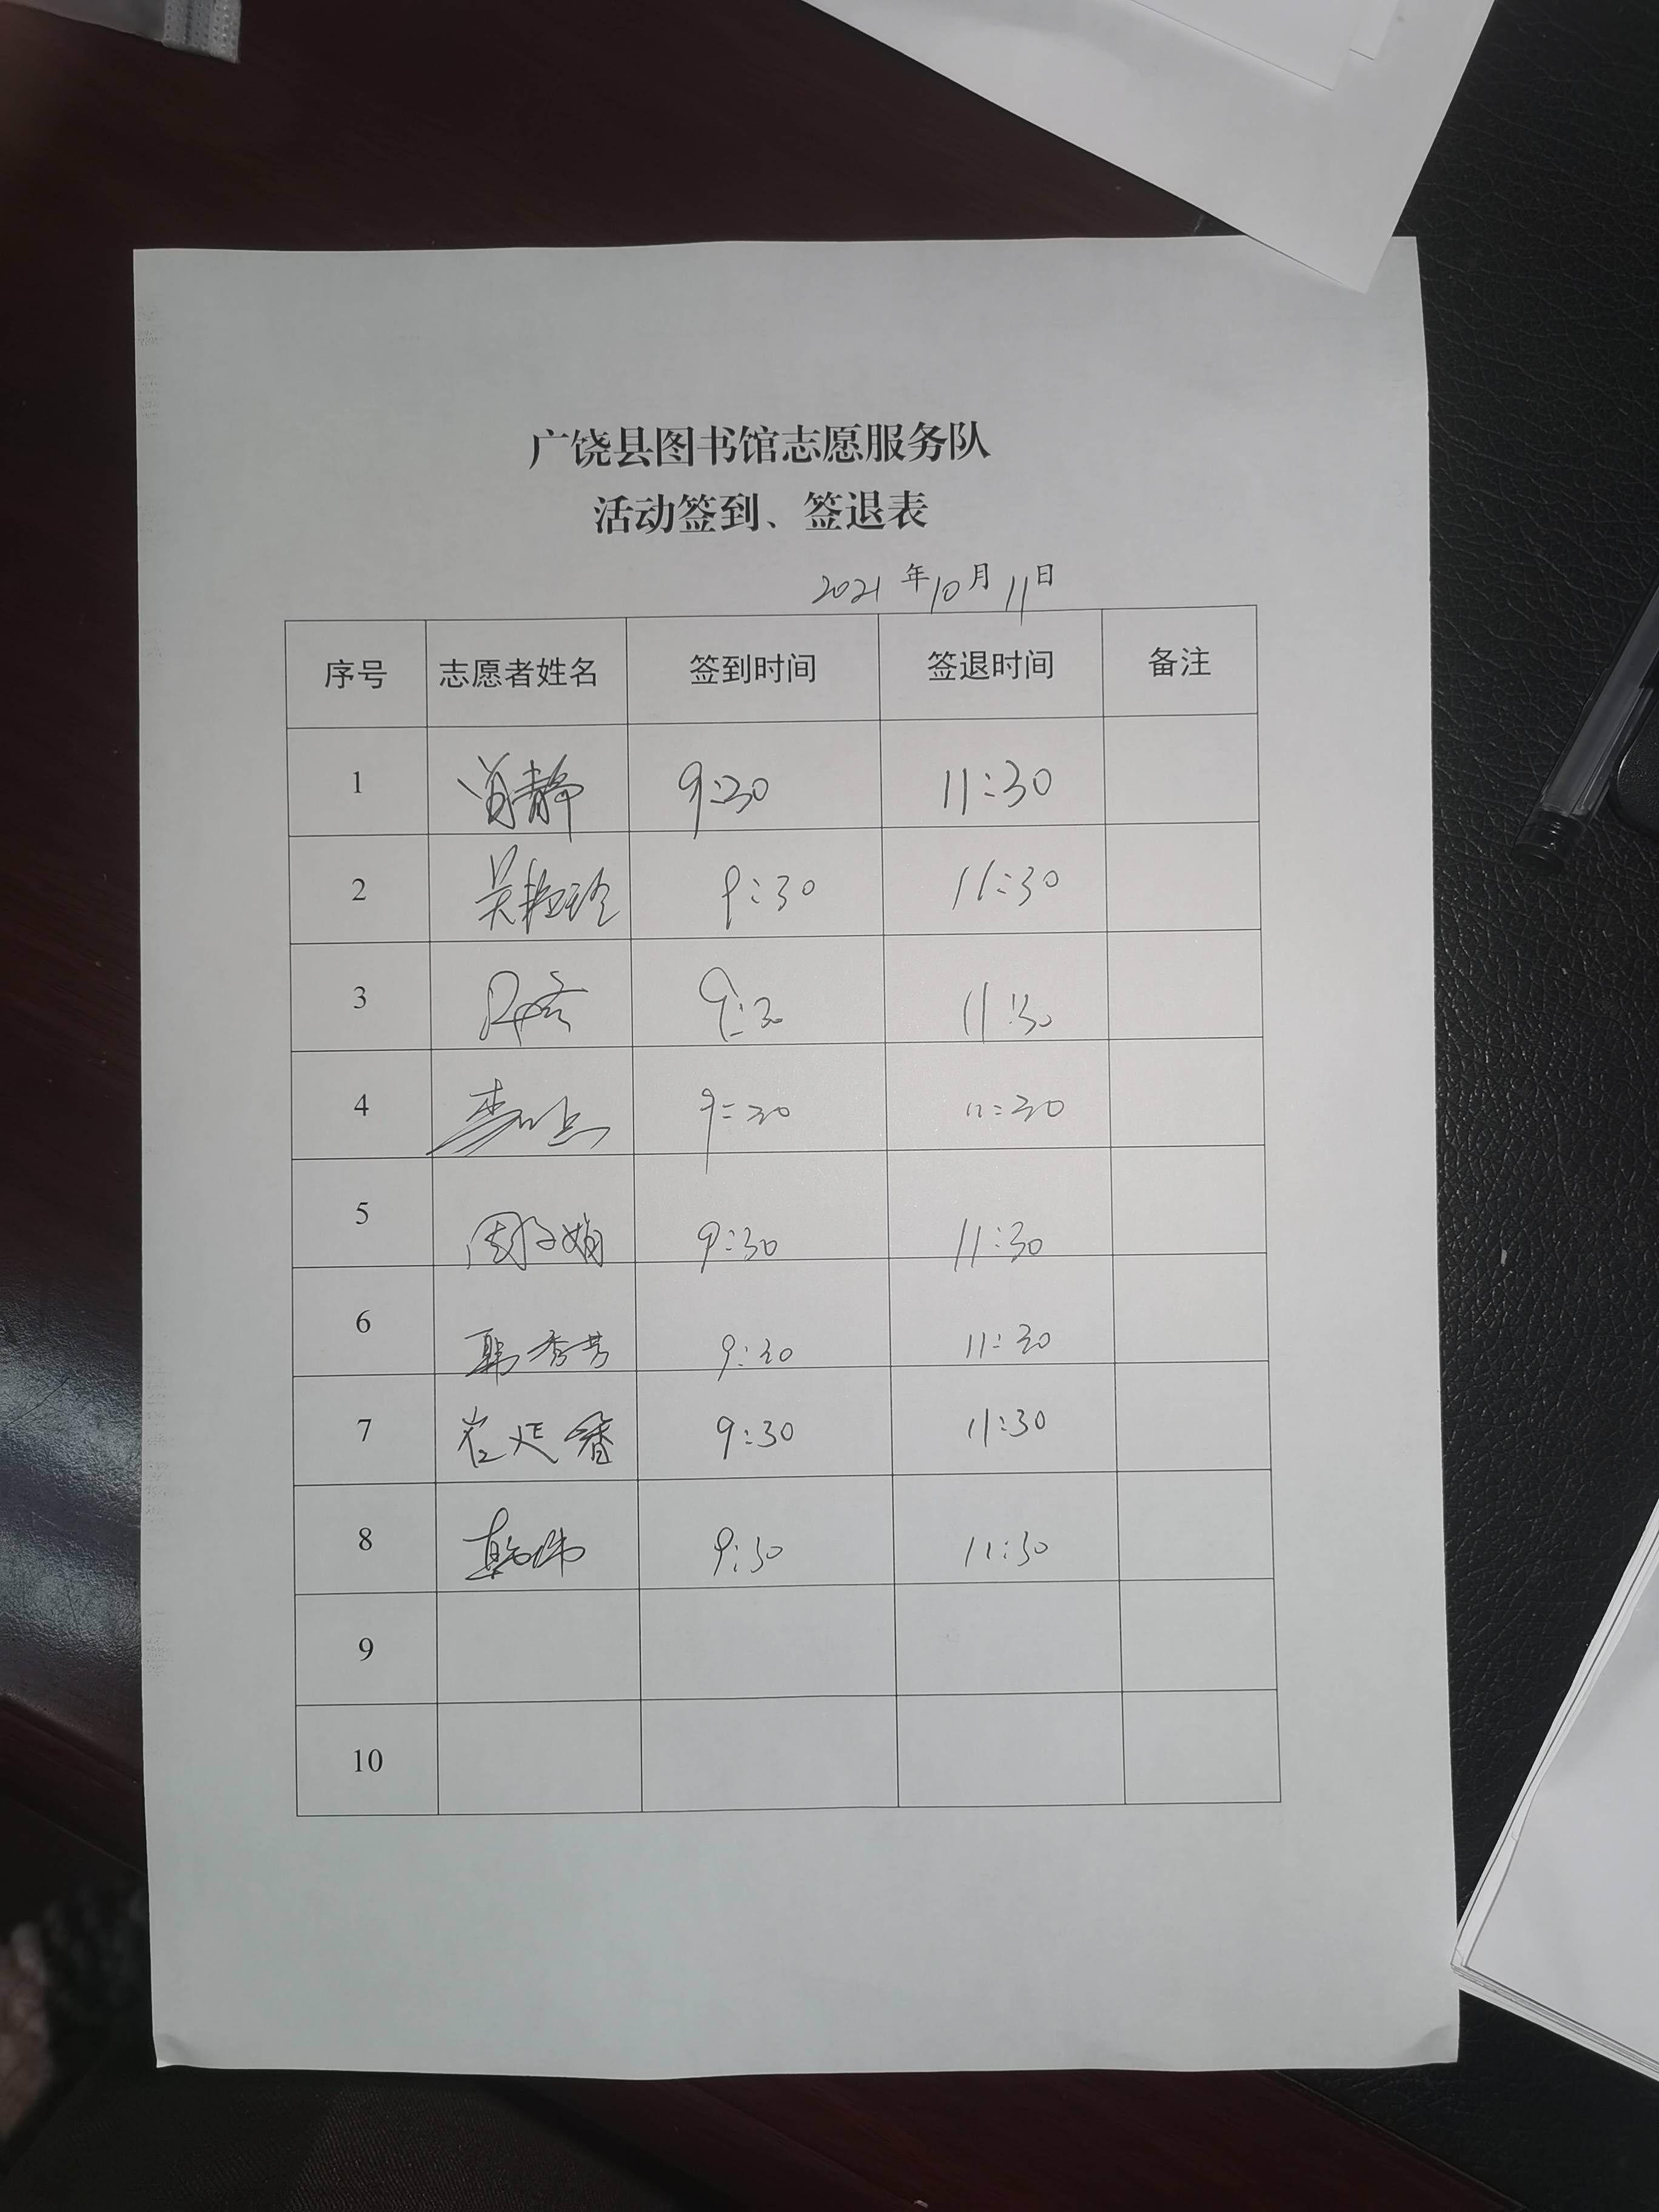 广饶县图书馆志愿服务队
活动签到、签退表
2021年10月11日
序号 志愿者姓名 签到时间 签退时间 备注
1 肖静 9:30 11:30
2 吴 9:30 11:30
3 9:30 11:30
4 李 9:30 11:30
5 周子娟 9:30 11:30
6 秀芳 9:30 11:30
7 崔延香 9:30 11:30
8 韩伟 9:30 11:30
9
10